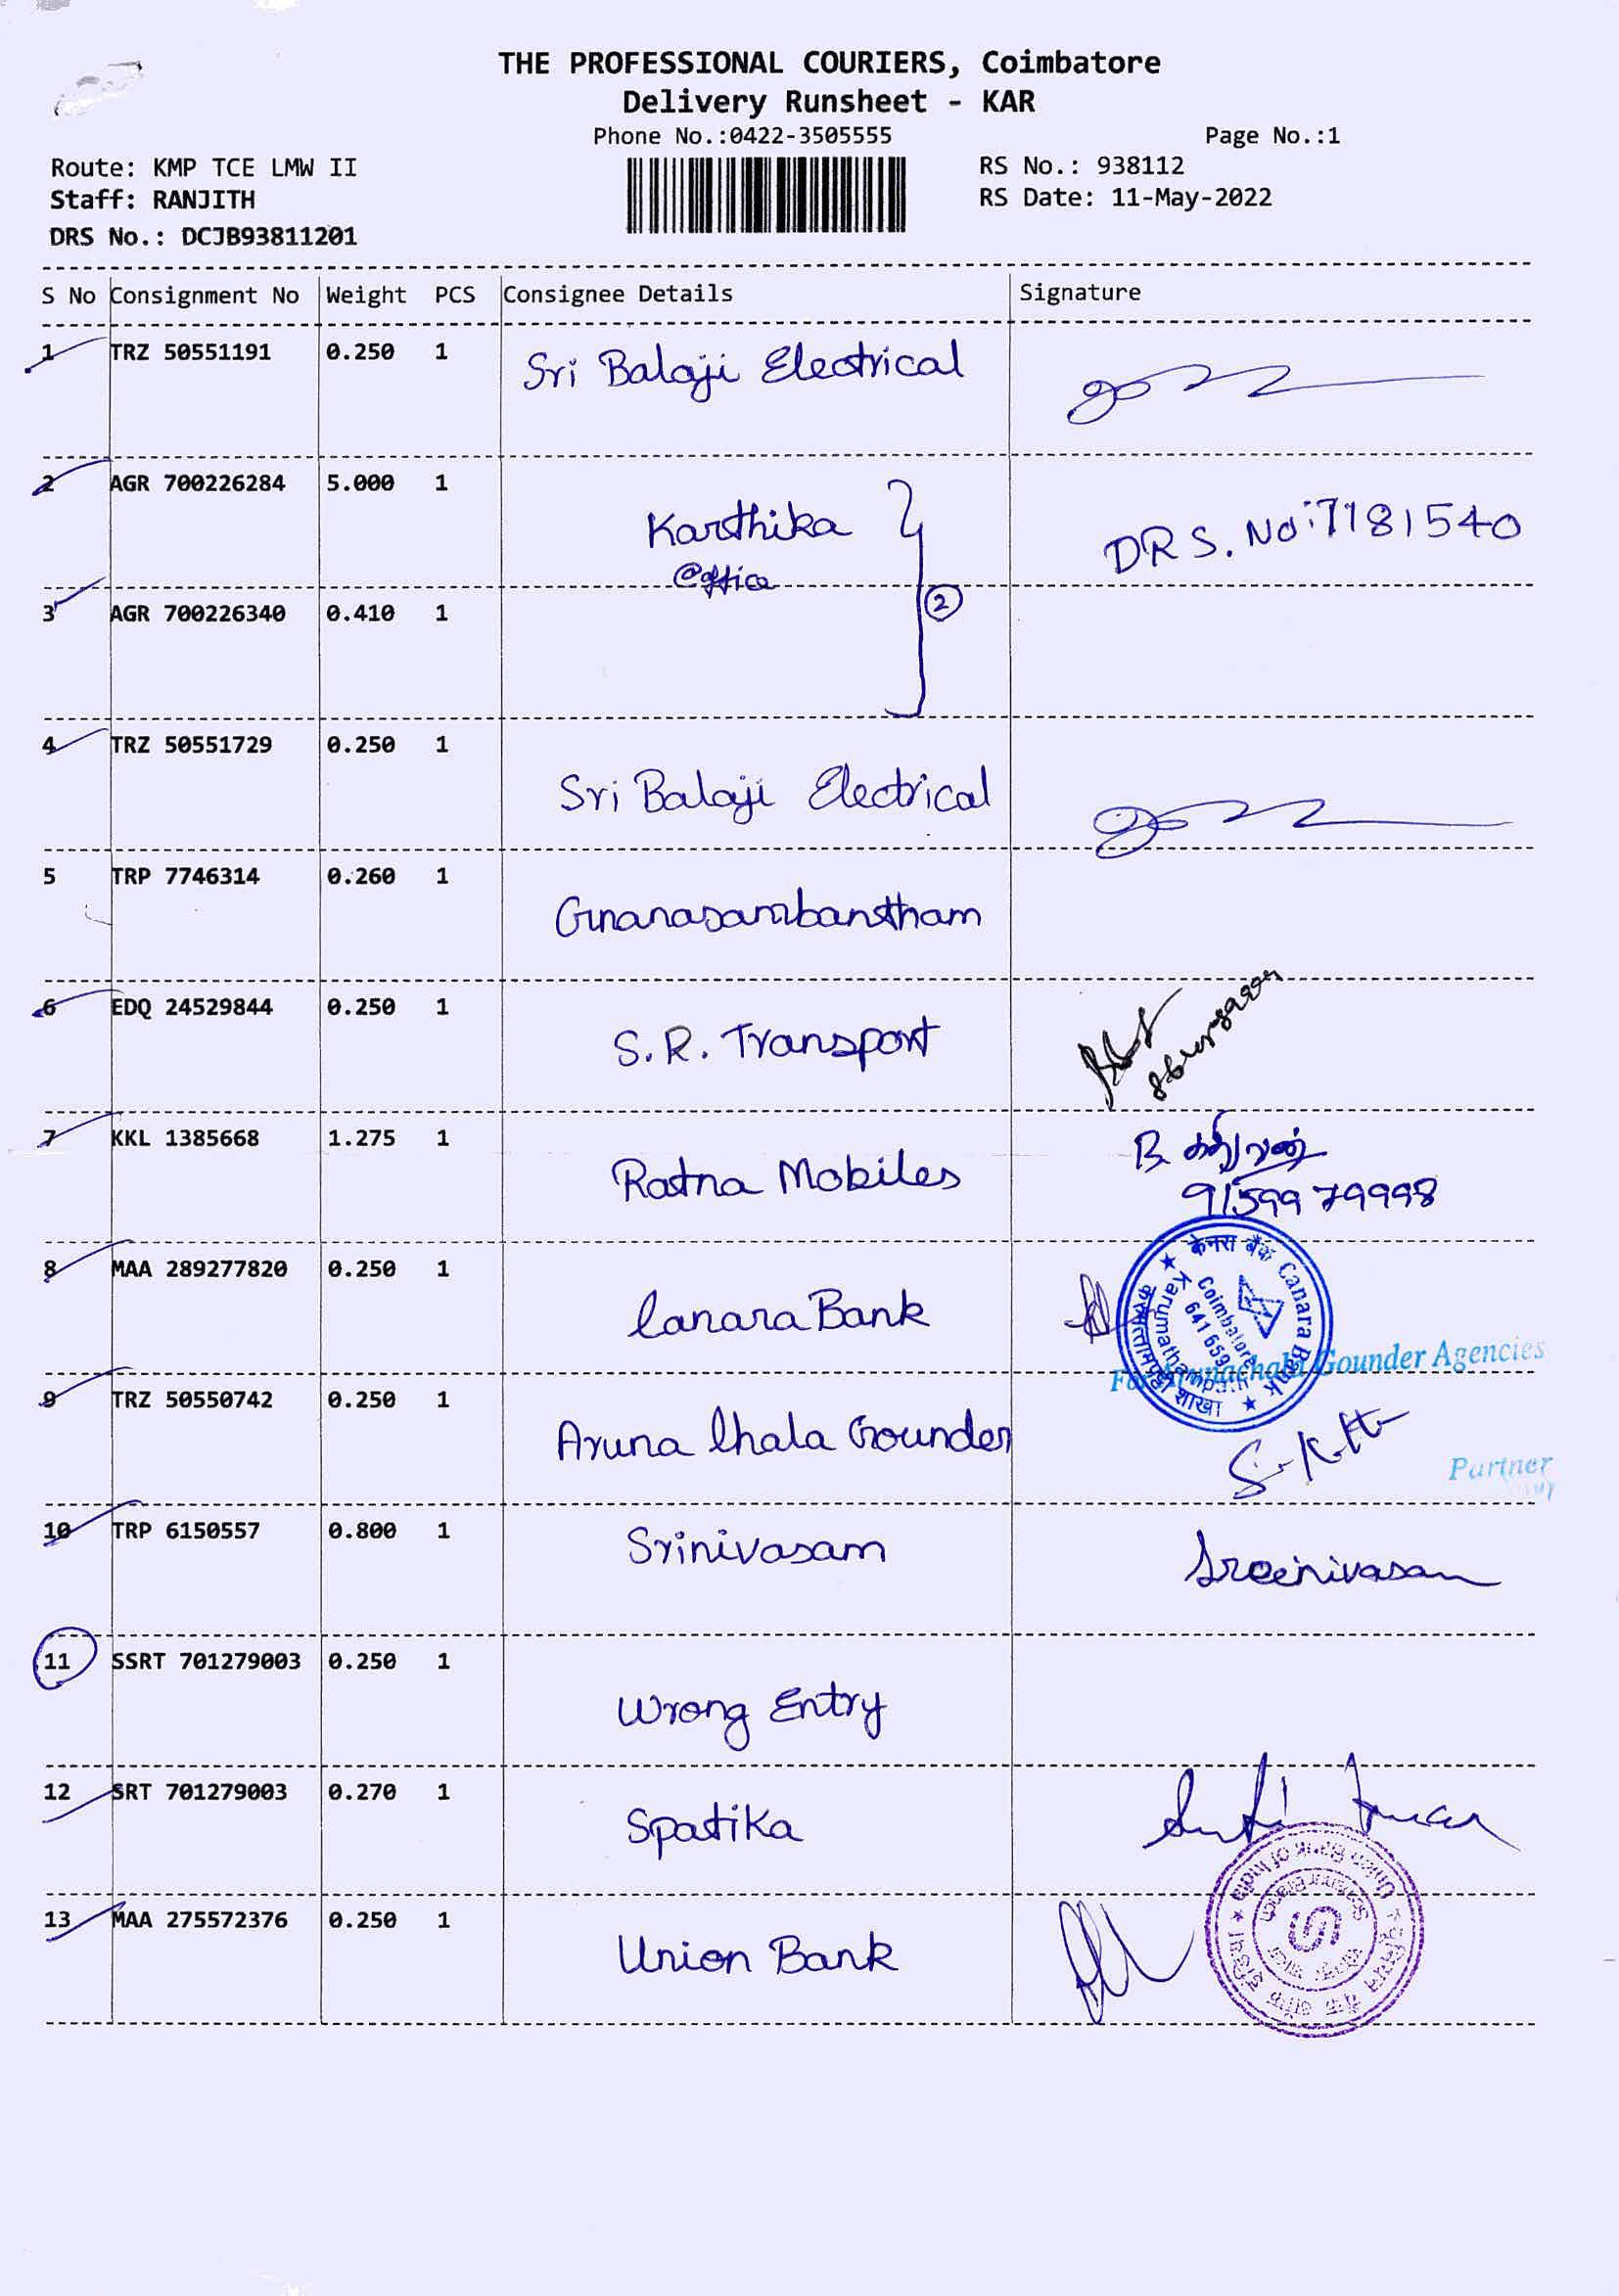 THE PROFESSIONAL COURIERS, Coimbatore
Delivery Runsheet - KAR
Phone No.:0422-3505555 Page No.:1
Route: KMP TCE LMW II RS No.: 938112
Staff: RANJITH RS Date: 11-May-2022
DRS No.: DCJB93811201
S No Consignment No Weight PCS Consignee Details Signature
1 TRZ 50551191 0.250 1 Sri Balaji Electrical
2 AGR 700226284 5.000 1 Karthika DRS. No:7181540
@office
3 AGR 700226340 0.410 1 2
4 TRZ 50551729 0.250 1 Sri Balaji Electrical
5 TRP 7746314 0.260 1 Gnanasambantham
6 EDQ 24529844 0.250 1 S.R. Transport
7 KKL 1385668 1.275 1 Ratna Mobiles B.
9159979998
8 MAA 289277820 0.250 1 Canara Bank
केनरा बैंक Canara Bank
Karumathampatti शाखा
Coimbatore
641 659
For Arunachala Gounder Agencies
9 TRZ 50550742 0.250 1 Aruna Chala Gounder
Partner
10 TRP 6150557 0.800 1 Srinivasam Sreenivasan
11 SSRT 701279003 0.250 1 Wrong Entry
12 SRT 701279003 0.270 1 Spatika
13 MAA 275572376 0.250 1 Union Bank
Union Bank of India